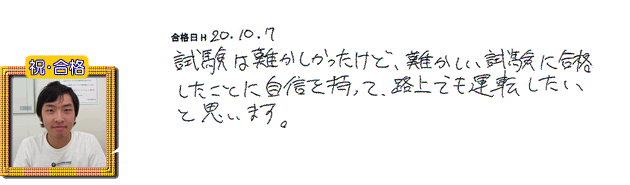 合格日H 20.10.7
試験は難かしかったけど、難かしい試験に合格
したことに自信を持って、路上でも運転したい
と思います。
祝・合格